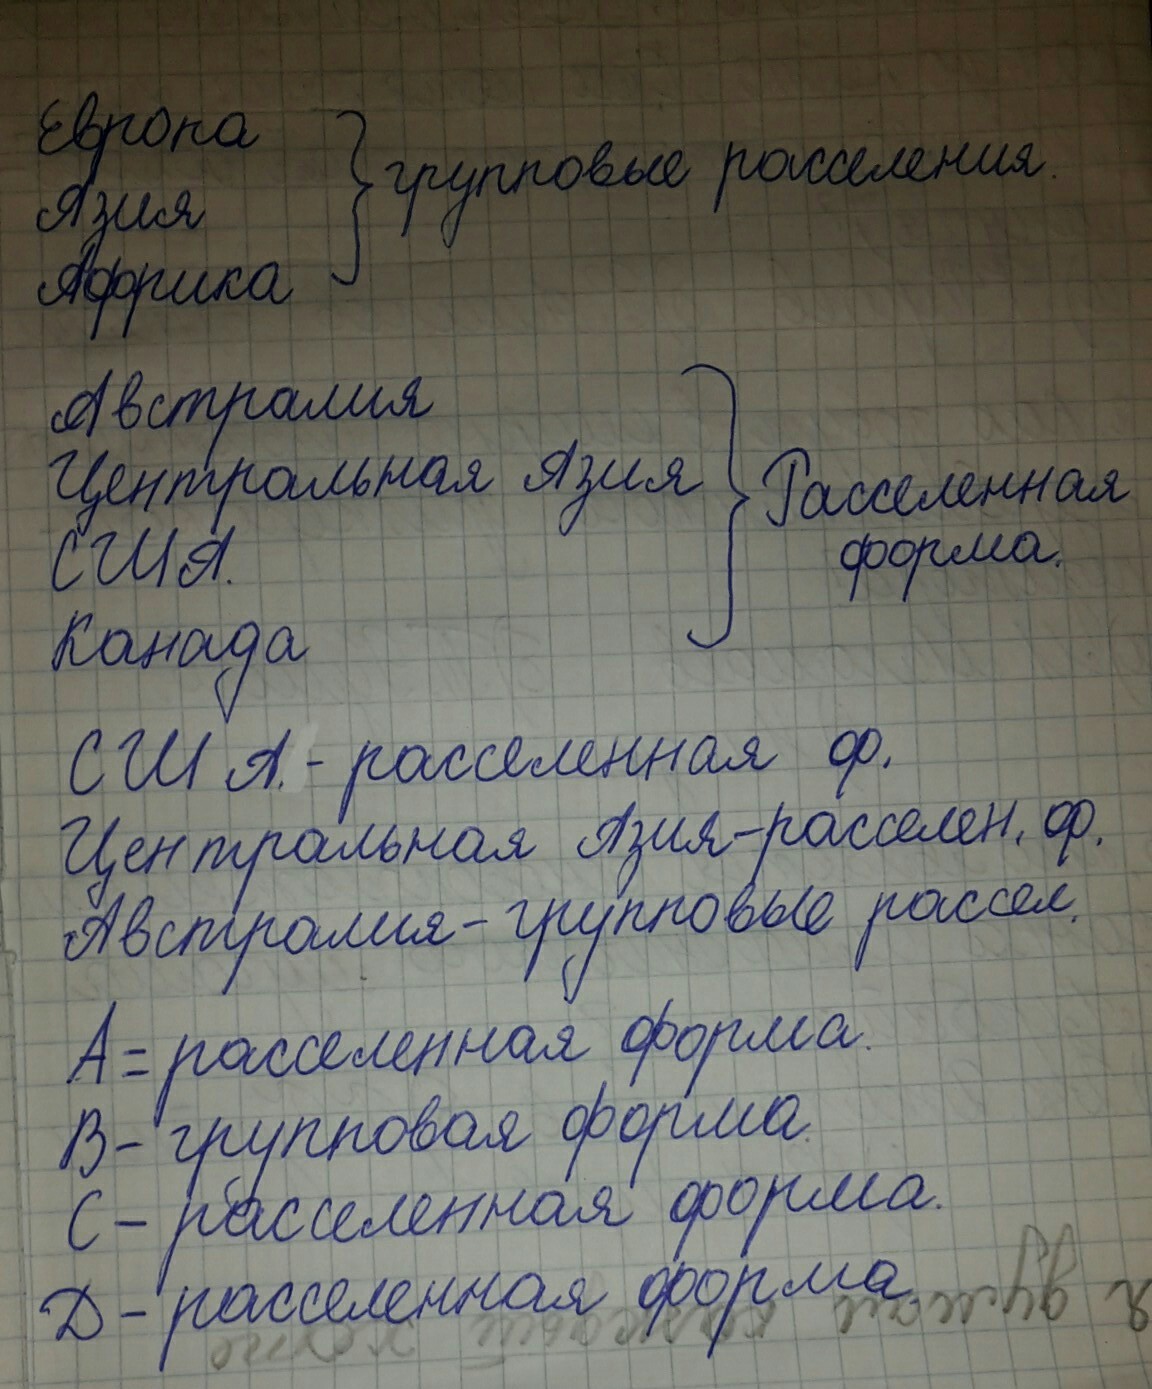 Европа
Азия
Африка
групповые расселения.
Австралия
Центральная Азия
США.
Канада
Расселенная
форма.
США. - расселенная ф.
Центральная Азия - расселен. ф.
Австралия - групповые рассел.
А = расселенная форма.
В - групповая форма.
С - расселенная форма.
D - расселенная форма.
я думаю каждый